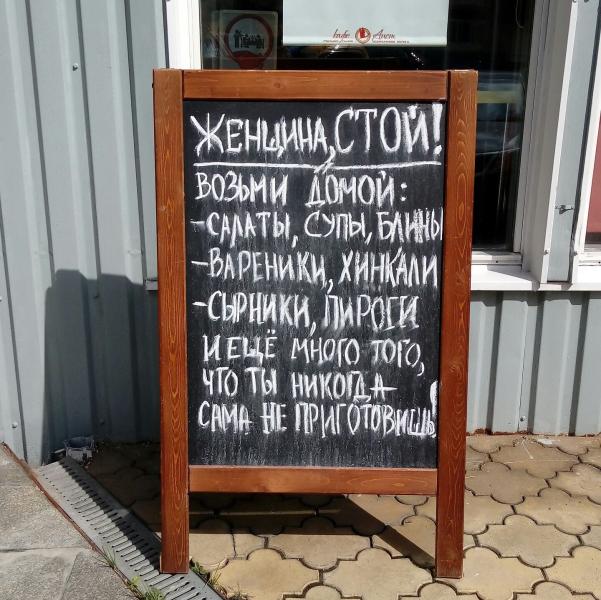 Кафе Аист
ЖЕНЩИНА, СТОЙ!
ВОЗЬМИ ДОМОЙ:
-САЛАТЫ, СУПЫ, БЛИНЫ
-ВАРЕНИКИ, ХИНКАЛИ
-СЫРНИКИ, ПИРОГИ
И ЕЩЁ МНОГО ТОГО,
ЧТО ТЫ НИКОГДА
САМА НЕ ПРИГОТОВИШЬ!